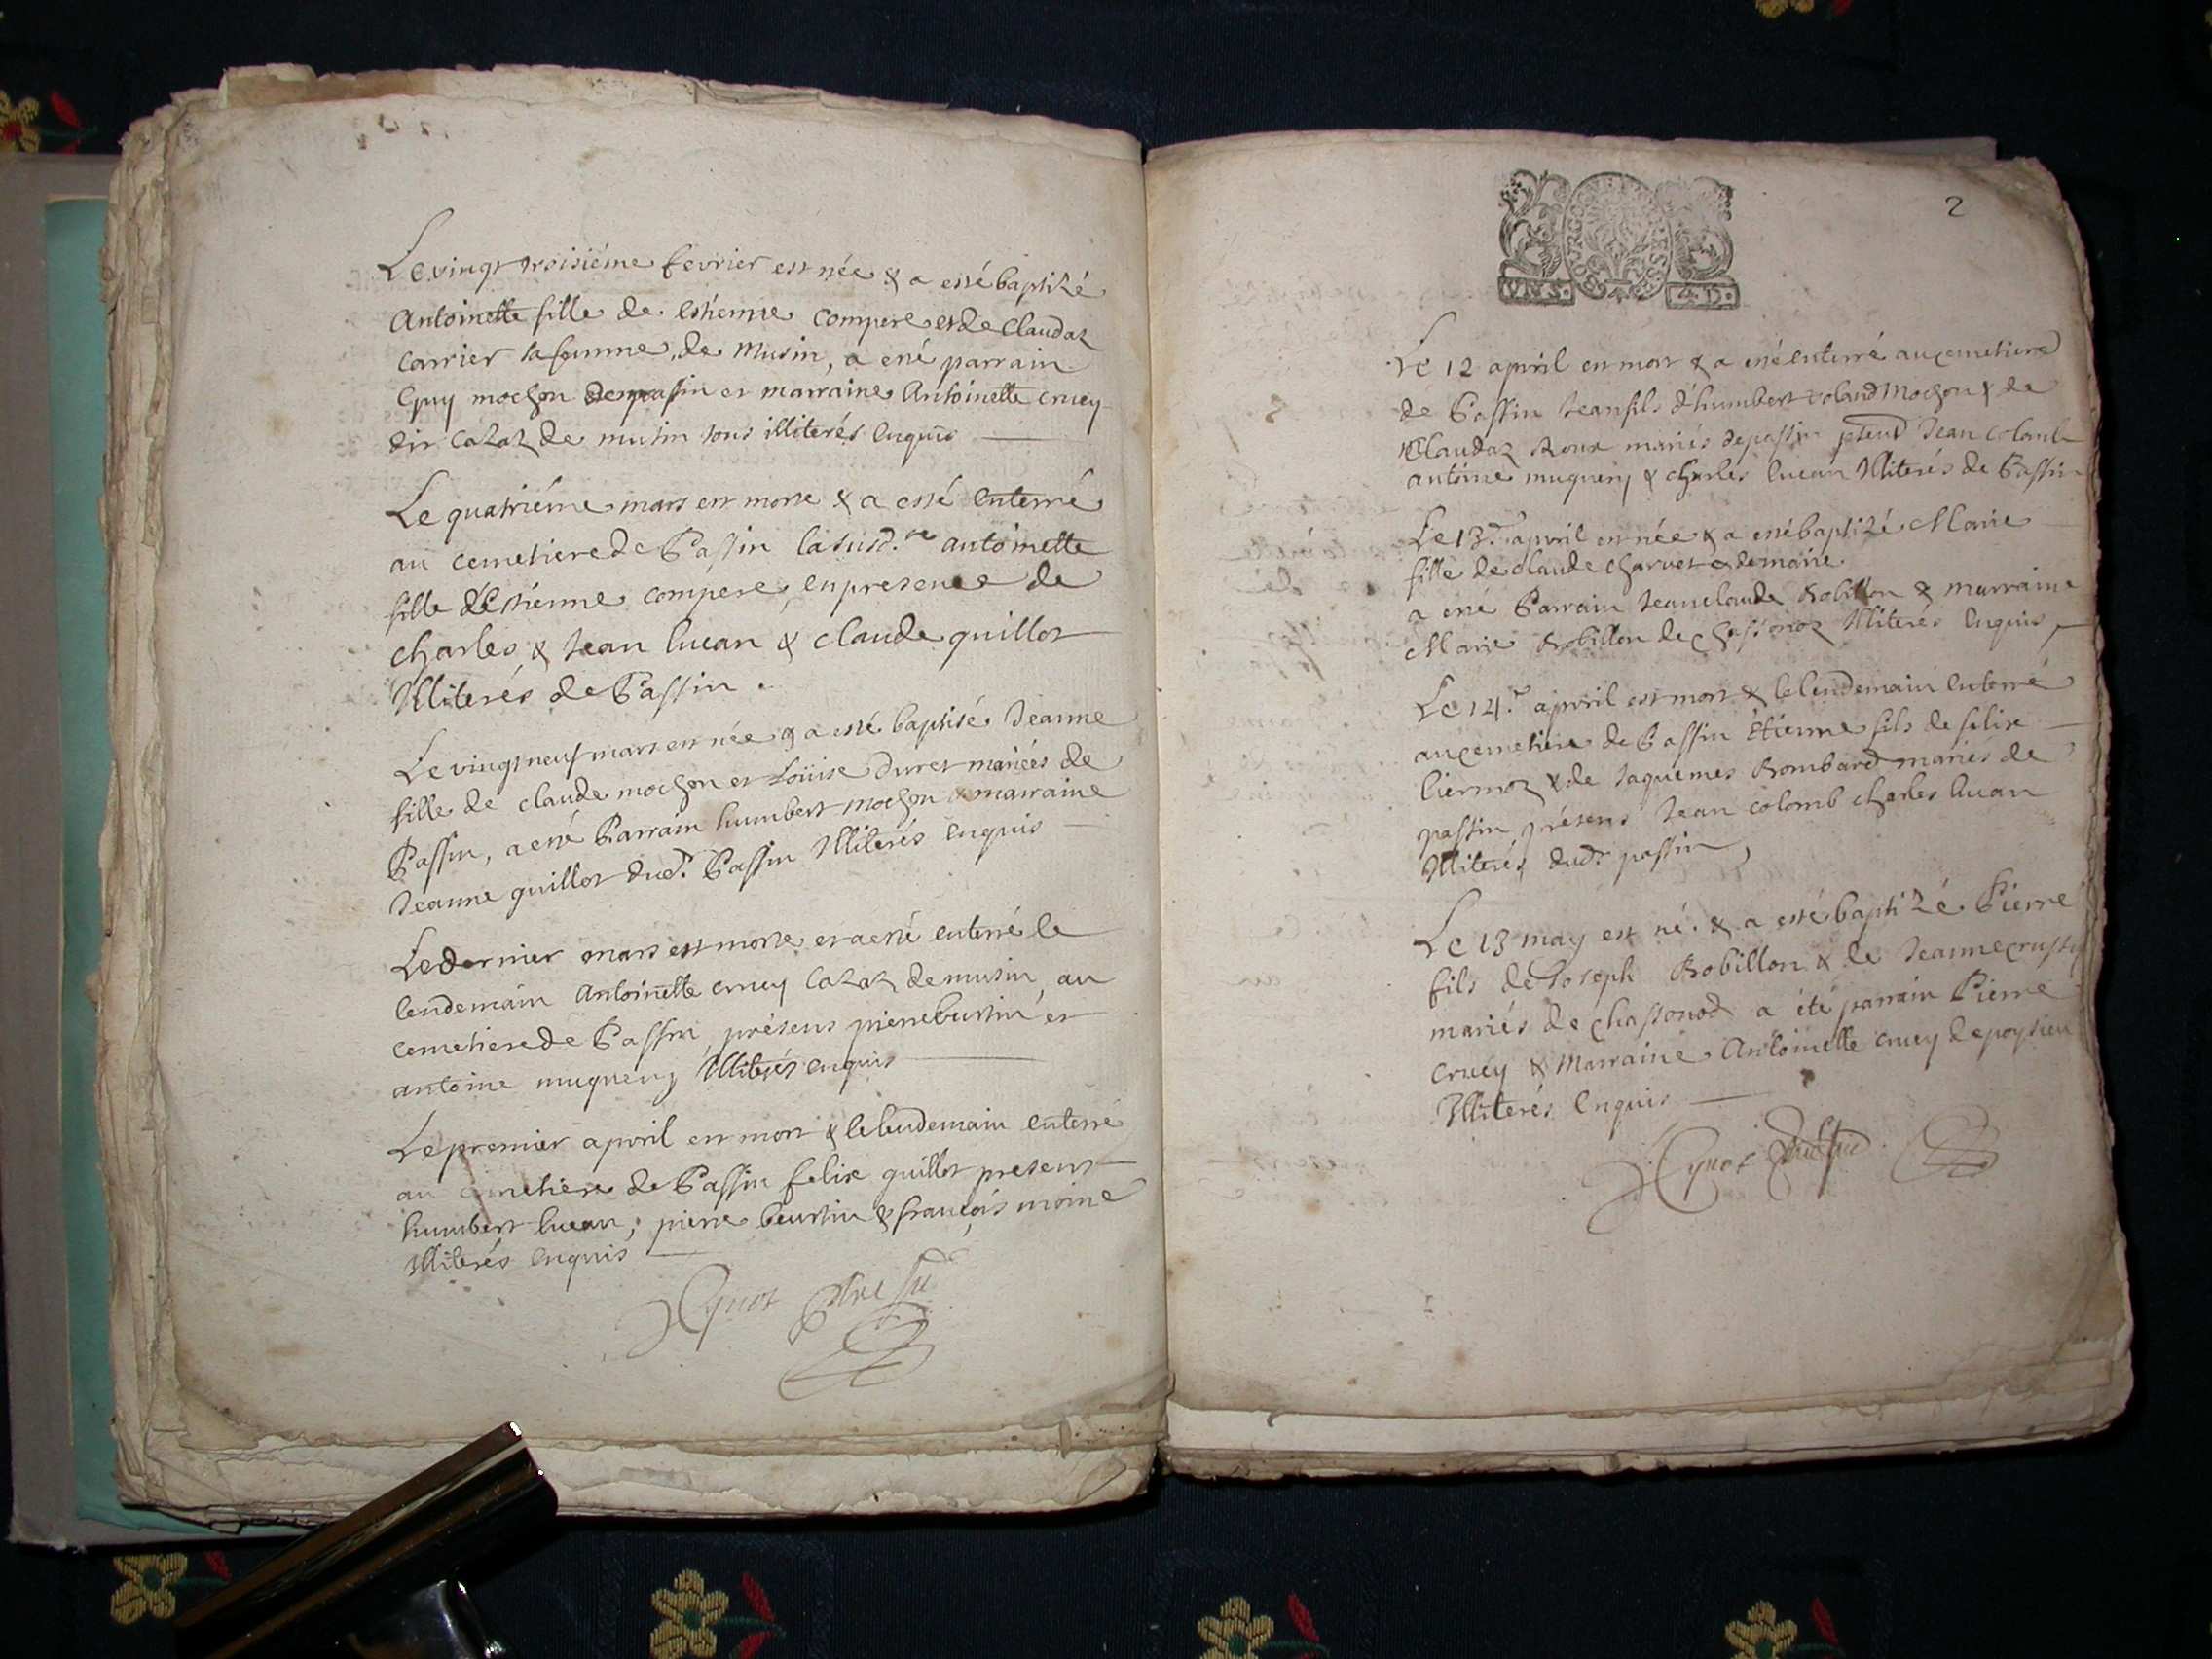 Le vingt troisiéme fevrier est née & a esté baptizé
Antoinette fille de Estienne compere et de Claudaz
Carrier sa femme de Musin, a eté parrain
Guy mochon de passin et marraine Antoinette cruey
dit Cazaz de musin tous illiterés enquis
Le quatriéme mars est morte & a esté enterré
au cemetiere de Passin la susd.te antoinette
fille d'Estienne compere, en presence de
charles & Jean lucan & claude guillot
Illiterés de Passin.
Le vingt neuf mars est née & a esté baptisé Jeanne
fille de claude mochon et Loüise duret mariées de
Passin, a eté Parrain humbert mochon & marraine
Jeanne guillot dud.t Passin Illiterés enquis
Le dernier mars est morte et a eté enterré le
lendemain Antoinette cruey Cazaz de musin, au
cemetiere de Passin, présens pierre burtin et
antoine muguery Illiterés enquis
Le premier apvril est mort & le lendemain enterré
au cimetiere de Passin felix guillot presens
humbert lucan, pierre beurtin & françois moine
Illiterés enquis
2
Le 12 apvril est mort & a eté enterré au cemetiere
de Passin Jean fils d'humbert roland Mochon & de
Claudaz Roux mariés de passin Jean colomb
antoine muguery & charles lucan Illiterés de Passin
Le 13.e apvril est née & a eté baptizé Marie
fille de claude charvet et de marie
a eté Parrain Jean claude Robillon & marraine
Marie Robillon de chassonoz Illiterés enquis
Le 14.e apvril est mort & le lendemain enterré
au cemetiere de Passin Etienne fils de felix
liermoz & de Jaquemes Rombard mariés de
passin, présens Jean colomb charles lucan
Illiterés dudt passin,
Le 13 may est né & a esté baptizé Pierre
fils de Joseph Robillon & de Jeanne crusty
mariés de chassonod a été parrain Pierre
cruey & Marraine Antoinette cruey de poysieu
Illiterés enquis